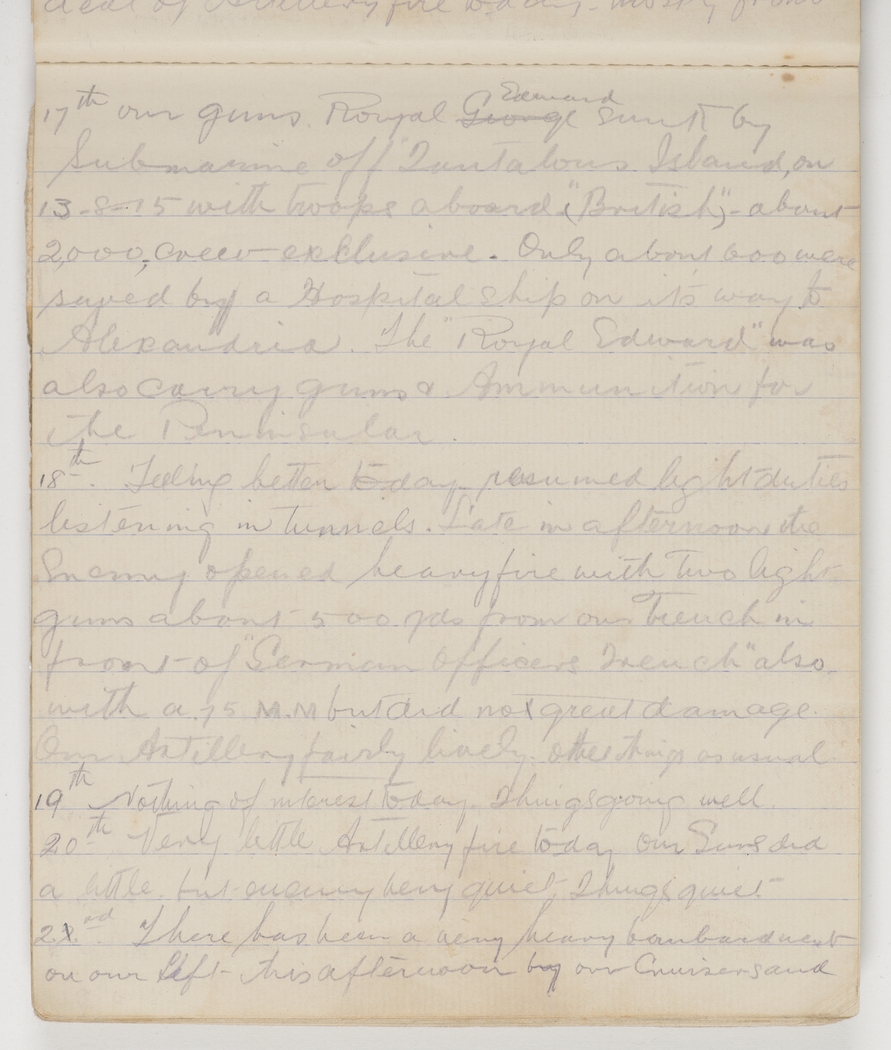 deal of Artillery fire today. mostly from
17th our guns. Royal George Edward sunk by
Submarine off Tantalous Island, on
13-8-15 with troops aboard "(British)" - about
2,000, crew exclusive. Only about 600 were
saved by a Hospital ship on its way to
Alexandria. The "Royal Edward" was
also carry guns & Ammunition for
the Peninsular.
18th. Feeling better to-day resumed light duties
listening in tunnels. Late in afternoon the
Enemy opened heavy fire with two light
guns about 500 yds from our Trench in
front of "German Officers Trench" also
with a 75 M.M but did not great damage.
Our Artillery fairly lively. other things as usual
19th Nothing of interest today. Things going well.
20th Very little Artillery fire today our Guns did
a little. but enemy very quiet, Things quiet
rd. There has been a very heavy bombardment
on our left this afternoon by our Cruisers and